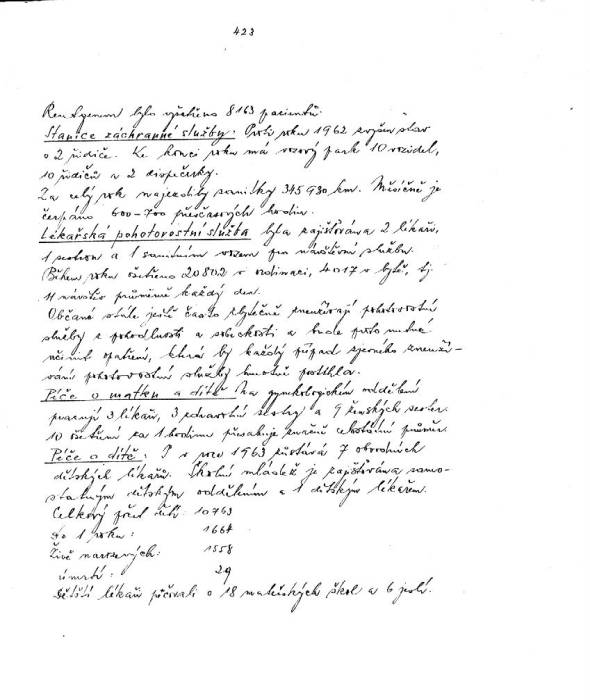 423
Rentgenem bylo vyšetřeno 8163 pacientů.
Stanice záchranné služby: Proti roku 1962 zvýšen stav
o 2 řidiče. Ke konci roku má vozový park 10 vozidel,
10 řidičů a 2 dispečerky.
Za celý rok najezdily sanitky 345930 km. Měsíčně je
čerpáno 600-700 přesčasových hodin.
Lékařská pohotovostní služba byla zajišťována 2 lékaři,
1 sestrou a 1 sanitním vozem pro návštěvní službu.
Během roku ošetřeno 20802 v ordinaci, 4017 v bytě, tj.
11 návštěv průměrně každý den.
Občané stále ještě často zbytečně zneužívají pohotovostní
služby z pohodlnosti a sobeckosti a bude proto nutné
učinit opatření, která by každý případ zjevného zneuží-
vání pohotovostní služby hmotně postihla.
Péče o matku a dítě: Na gynekologickém oddělení
pracují 3 lékaři, 3 zdravotní sestry a 9 ženských sester.
10 ošetření za 1 hodinu přesahuje značně celostátní průměr.
Péče o dítě: I v roce 1963 zůstává 7 obvodních
dětských lékařů. Školní mládež je zajišťována samo-
statným dětským oddělením a 1 dětským lékařem.
Celkový počet dětí: 10763
do 1 roku: 1664
Živě narozených: 1558
úmrtí: 29
Dětští lékaři pečovali o 18 mateřských škol a 6 jeslí.